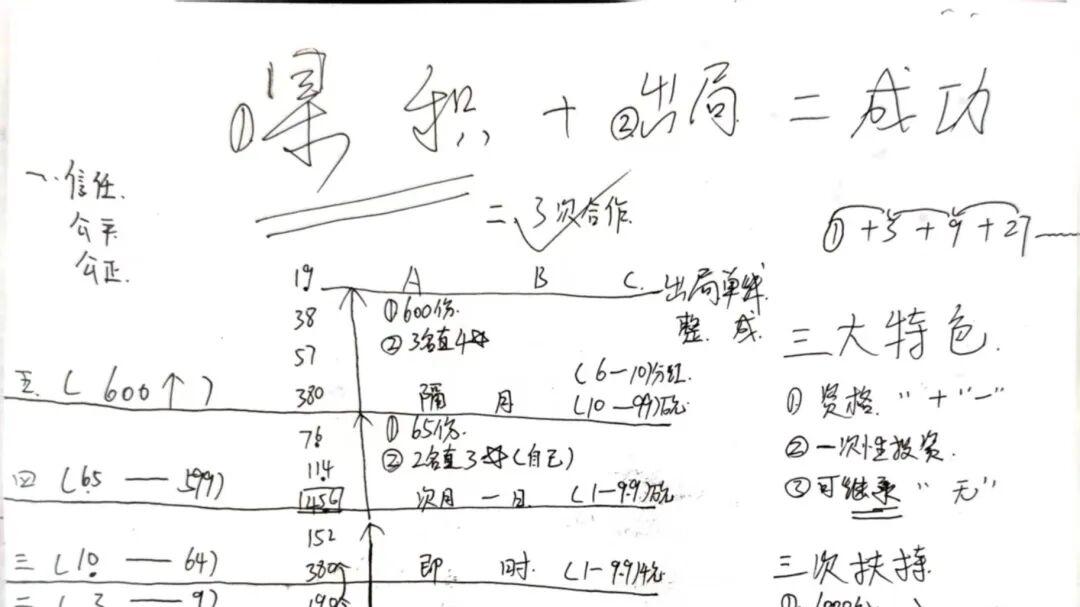 ①累积+②出局=成功
一、信任.
公平
公正.
=3次合作.
①+3+9+27
19 A B C. 出局单线.
38 ①600份. 整 成.
57 ②3名直4
三大特色.
(6-10)分红.
五.(600↑) 380 隔 月 (10-99)
①资格."+""-"
76 ①65份.
②2名直3 (自己)
②一次性投资.
114
四(65——599) 456 次月一日 (1-9.9)
③可继承"无"
152
三(10——64) 380 即 时. (1-9.9)
三次扶持.
二(3——9) 190